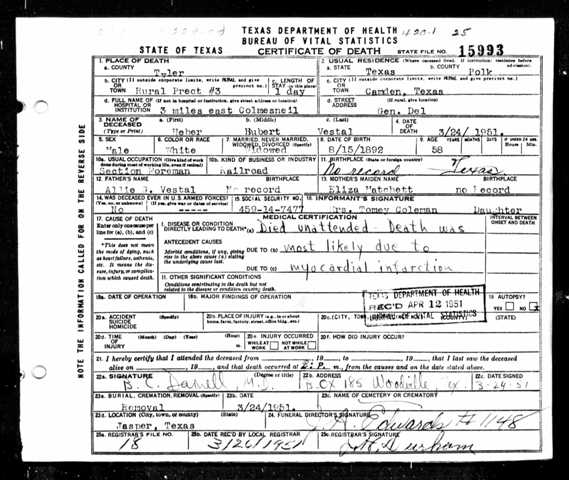 TEXAS DEPARTMENT OF HEALTH 420.1 25
BUREAU OF VITAL STATISTICS
STATE OF TEXAS CERTIFICATE OF DEATH STATE FILE NO. 15993
1 PLACE OF DEATH 2. USUAL RESIDENCE (Where deceased lived. If institution: residence before admission)
a. COUNTY Tyler a. STATE Texas b. COUNTY Polk
b. CITY (If outside corporate limits, write RURAL and give precinct no.) OR TOWN Rural Prect #3 c. LENGTH OF STAY (in this place) 1 day c. CITY (If outside corporate limits, write RURAL and give precinct no.) OR TOWN Camden, Texas
d. FULL NAME OF (If not in hospital or institution, give street address or location) HOSPITAL OR INSTITUTION 3 miles east Colmesneil d. STREET ADDRESS (If rural, give location) Gen. Del
3. NAME OF DECEASED (Type or Print) a. (First) Heber b. (Middle) Hubert c. (Last) Vestal 4. DATE OF DEATH 3/24/1951.
5. SEX Male 6. COLOR OR RACE White 7. MARRIED, NEVER MARRIED, WIDOWED, DIVORCED Widowed 8. DATE OF BIRTH 8/15/1892 9. AGE YEARS 58
10a. USUAL OCCUPATION (Give kind of work done during most of working life, even if retired) Section Foreman 10b. KIND OF BUSINESS OR INDUSTRY Railroad 11. BIRTHPLACE (State or foreign country) No record Texas
12. FATHER'S NAME Allie B. Vestal BIRTHPLACE No record 13. MOTHER'S MAIDEN NAME Eliza Matchett BIRTHPLACE no Record
14. WAS DECEASED EVER IN U.S. ARMED FORCES? No 15. SOCIAL SECURITY NO. 459-14-7477 16. INFORMANT'S SIGNATURE Mrs. Tomey Coleman Daughter
17. CAUSE OF DEATH MEDICAL CERTIFICATION INTERVAL BETWEEN ONSET AND DEATH
Enter only one cause per line for (a), (b), and (c)
I. DISEASE OR CONDITION DIRECTLY LEADING TO DEATH (a) Died unattended - Death was
*This does not mean the mode of dying, such as heart failure, asthenia, etc. It means the disease, injury, or complication which caused death.
ANTECEDENT CAUSES
Morbid conditions, if any, giving rise to the above cause (a) stating the underlying cause last.
DUE TO (b) most likely due to
DUE TO (c) myocardial infarction
II. OTHER SIGNIFICANT CONDITIONS
Conditions contributing to the death but not related to the disease or condition causing death.
18a. DATE OF OPERATION 18b. MAJOR FINDINGS OF OPERATION 19. AUTOPSY? YES NO
TEXAS DEPARTMENT OF HEALTH
REC'D APR 12 1951
BUREAU OF VITAL STATISTICS
20a. ACCIDENT SUICIDE HOMICIDE 20b. PLACE OF INJURY (e.g., in or about home, farm, factory, street, office bldg., etc.) 20c. (CITY, TOWN
20d. TIME OF INJURY (Month) (Day) (Year) (Hour) 20e. INJURY OCCURRED WHILE AT WORK NOT WHILE AT WORK 20f. HOW DID INJURY OCCUR?
21. I hereby certify that I attended the deceased from 19 to 19 , that I last saw the deceased
alive on 19 and that death occurred at P. m., from the causes and on the date stated above.
22a. SIGNATURE (Degree or title) 22b. ADDRESS Box 185 Woodville, Tex. 22c. DATE SIGNED 3-24-51
23a. BURIAL, CREMATION, REMOVAL (Specify) Removal 23b. DATE 3/24/1951. 23c. NAME OF CEMETERY OR CREMATORY
23d. LOCATION (City, town, or county) (State) Jasper, Texas 24. FUNERAL DIRECTOR'S SIGNATURE Edwards # 1148
25a. REGISTRAR'S FILE NO. 18 25b. DATE REC'D BY LOCAL REGISTRAR 3/26/1951 25c. REGISTRAR'S SIGNATURE Durham
NOTE THE INFORMATION CALLED FOR ON THE REVERSE SIDE